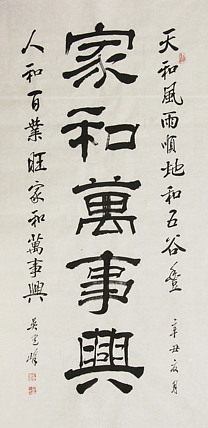 天和風雨順地和五谷登
辛丑亥月
家和萬事興
人和百業旺家和萬事興